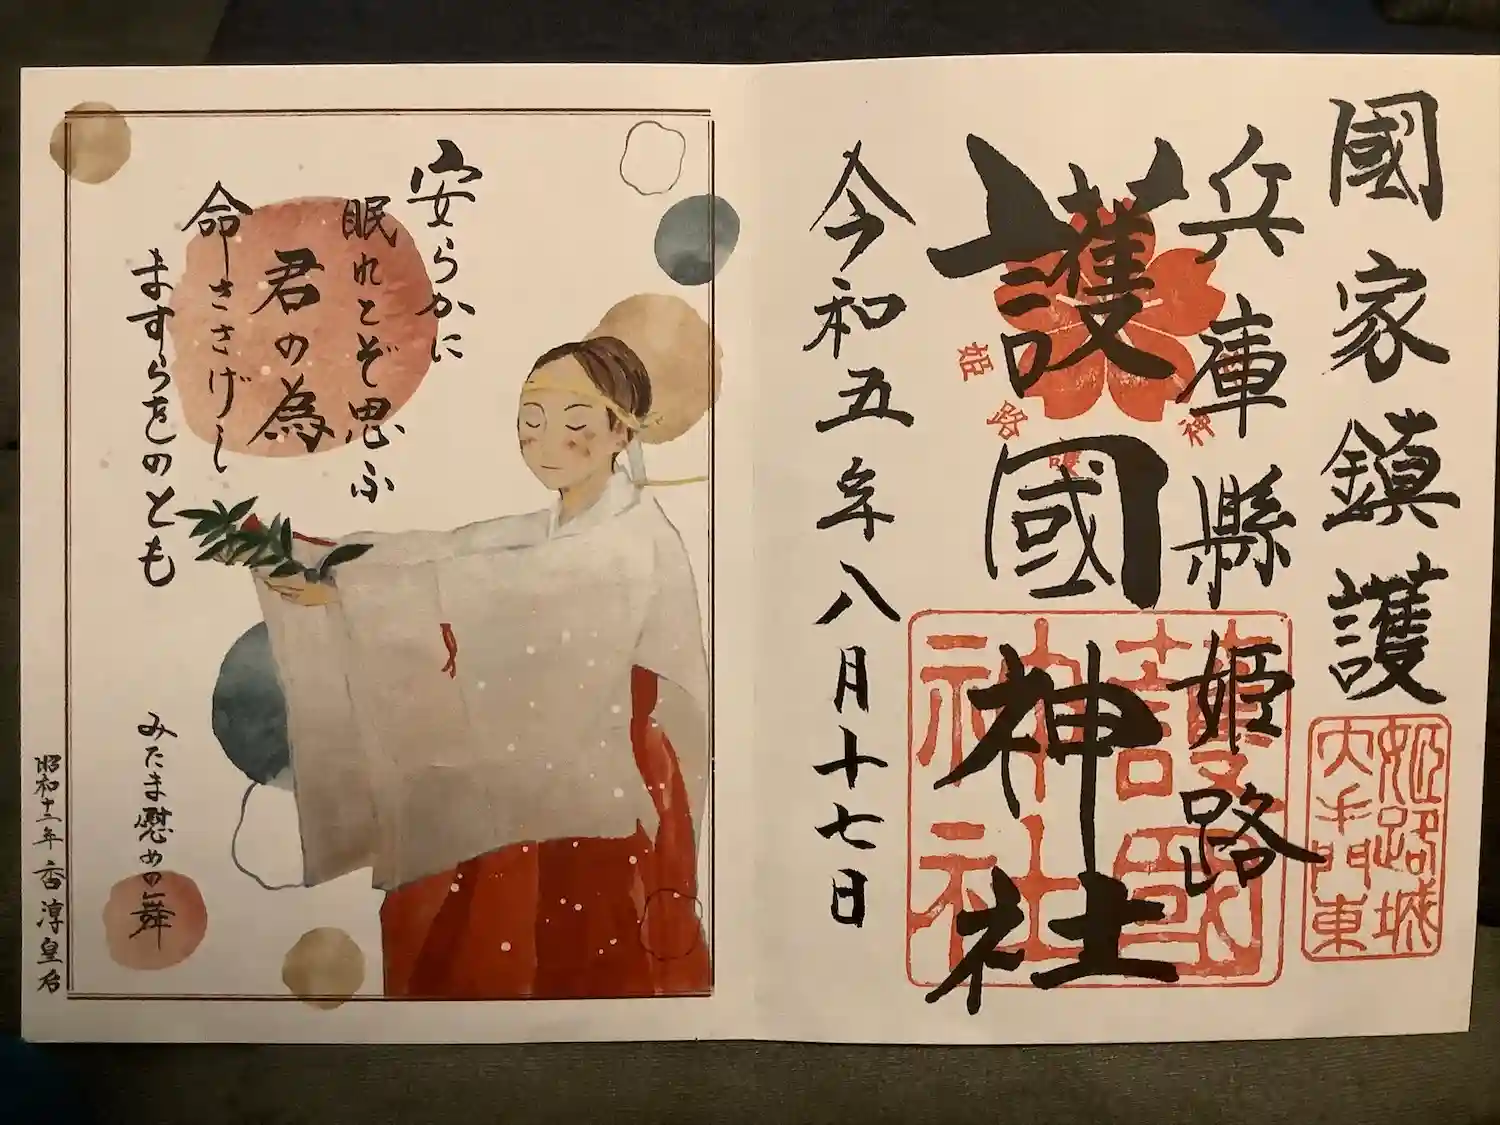 國家鎮護
兵庫縣姫路
護國神社
令和五年八月十七日
姫路
神
護
護國
神社
姫路城
大手門東
安らかに
眠れとぞ思ふ
君の為
命ささげし
ますらをのとも
みたま慰めの舞
昭和十二年 香淳皇后